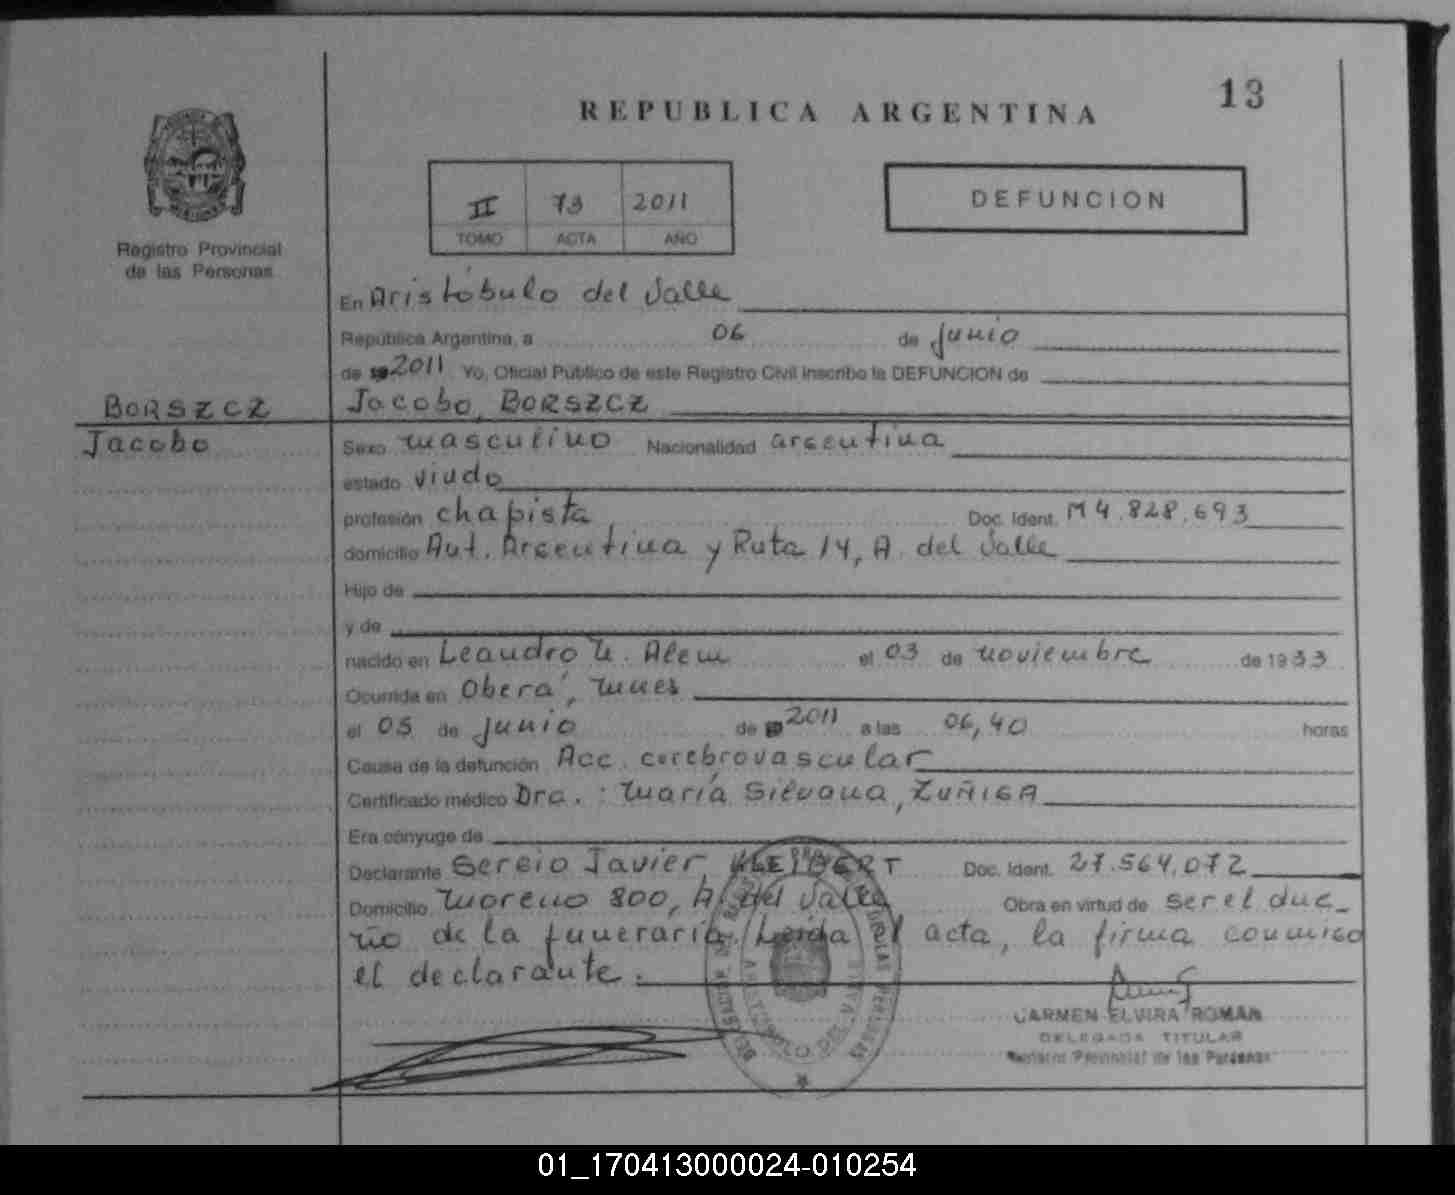 13
REPUBLICA ARGENTINA
II 73 2011
TOMO ACTA AÑO
DEFUNCION
Registro Provincial
de las Personas
En Aristóbulo del Valle
República Argentina, a 06 de junio
de 2011 Yo, Oficial Público de este Registro Civil inscribo la DEFUNCION de
BORSZCZ
Jacobo
Jacobo, BORSZCZ
Sexo masculino Nacionalidad argentina
estado viudo
profesión chapista Doc. Ident. M 4.828.693
domicilio Aut. Argentina y Ruta 14, A. del Valle
Hijo de
y de
nacido en Leandro N. Alem el 03 de noviembre de 1933
Ocurrida en Oberá, Mnes
el 05 de junio de 2011 a las 06,40 horas
Causa de la defunción Acc. cerebrovascular
Certificado médico Dra.: María Silvana, ZUÑIGA
Era cónyuge de
Declarante Sergio Javier, KLEIBERT Doc. Ident. 27.564.072
Domicilio Moreno 800, A. del Valle Obra en virtud de ser el due-
ño de la funeraria. Leída el acta, la firma conmigo
el declarante.
CARMEN ELVIRA ROMAN
DELEGADA TITULAR
Registro Provincial de las Personas
01_170413000024-010254